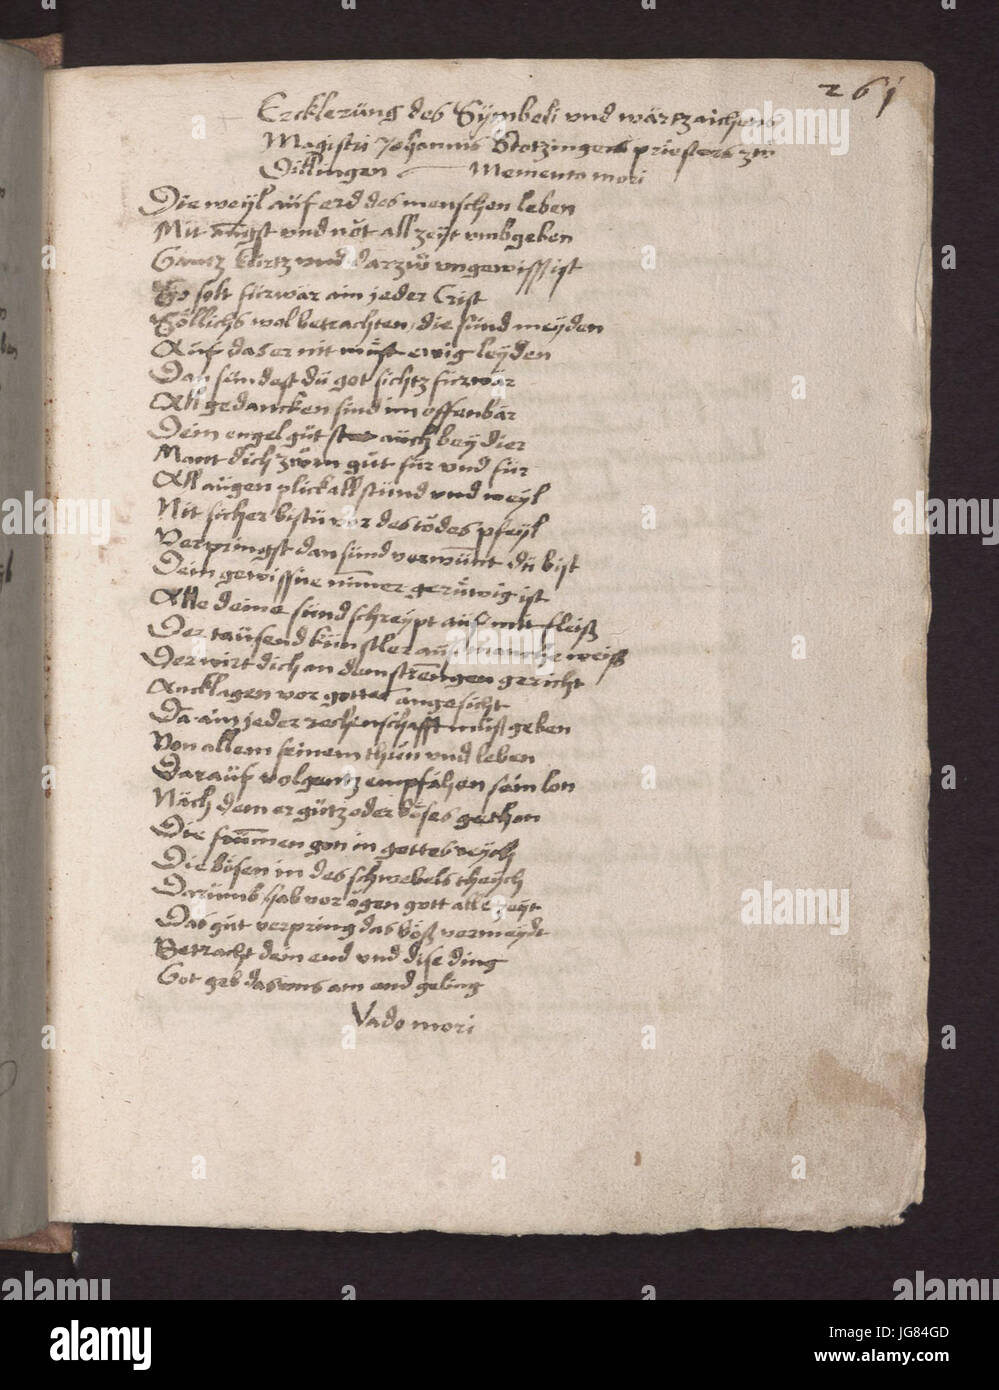 261
Ercklerüng des Sÿmboli und wärtzaichens
Magistri Johannis Stotzingers priesters zů
Dillingen — Memento mori
Die weÿl aüf erd des menschen leben
Mit angst und nöt all zeÿt umbgeben
Gantz kürtz und darzů ungewiss ist
So solt fürwar ain jeder Crist
Söllichs wol betrachten, die sünd meÿden
Auf das er nit müst ewig leÿden
Dan sündest dü got sichtz fürwar
All gedancken sind im offenbar
Dein engel güt stet aüch beÿ dier
Mant dich zům güt für und für
All aügen plick all stünd und weÿl
Nit sicher bistü vor des todes pfeÿl
Verpringst dan sünd verwünt dü bist
Dein gewissne nimer gerüwig ist
Alle deine sünd schreÿpt aüf mit fleiß
Der taüsend künstler auf manche weiß
Der wirt dich an dem strengen gericht
Ancklagen vor gottes angesicht
Da ain jeder rechenschafft müß geben
Von allem seinem thün und leben
Daraüf volgentz empfahen sein lon
Näch dem er gütz oder böses gethon
Die frümen gon in gottes reÿch
Die bösen in des schwebels theÿch
Darümb hab vor ogen gott alle zeÿt
Das güt verpring das böß vermeÿdt
Betracht dein end und dise ding
Got geb das uns am end geling
Vado mori
alamy
alamy
Image ID: JG84GD
www.alamy.com